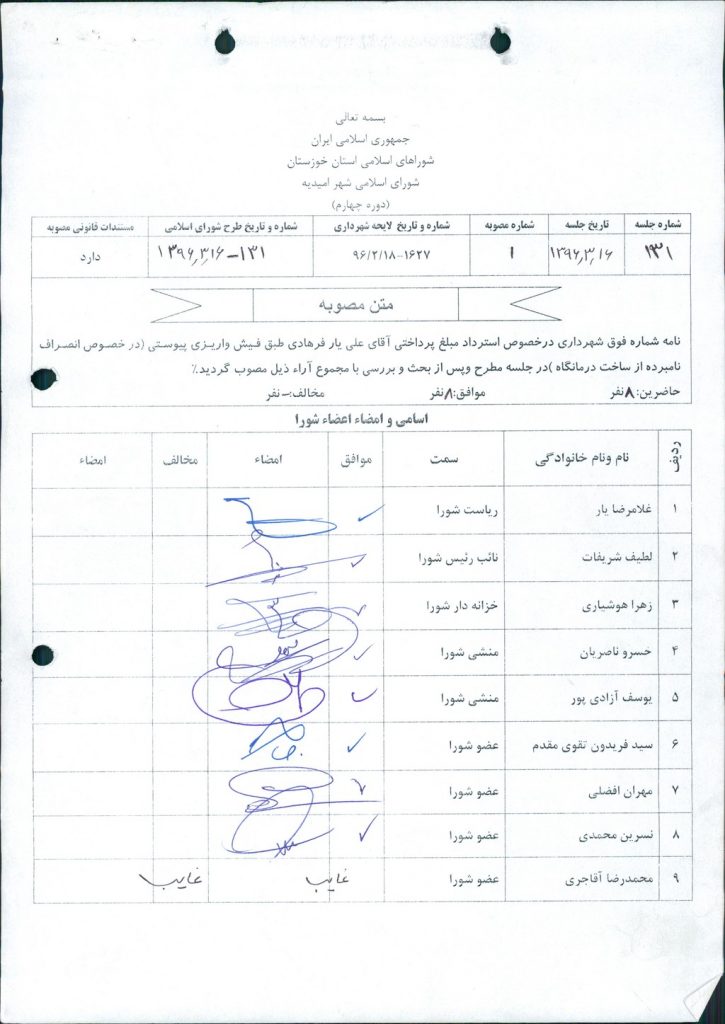 بسمه تعالی
جمهوری اسلامی ایران
شوراهای اسلامی استان خوزستان
شورای اسلامی شهر امیدیه
(دوره چهارم)
شماره جلسه تاریخ جلسه شماره مصوبه شماره و تاریخ لایحه شهرداری شماره و تاریخ طرح شورای اسلامی مستندات قانونی مصوبه
۱۳۱ ۱۳۹۶٫۳٫۱۶ ۱ ۹۶/۲/۱۸-۱۶۲۷ ۱۳۱-۱۳۹۶٫۳٫۱۶ دارد
متن مصوبه
نامه شماره فوق شهرداری درخصوص استرداد مبلغ پرداختی آقای علی یار فرهادی طبق فیش واریزی پیوستی (در خصوص انصراف
نامبرده از ساخت درمانگاه )در جلسه مطرح وپس از بحث و بررسی با مجموع آراء ذیل مصوب گردید.٪
حاضرین:۸نفر موافق:۸نفر مخالف:-نفر
اسامی و امضاء اعضاء شورا
ردیف نام ونام خانوادگی سمت موافق امضاء مخالف امضاء
۱ غلامرضا یار ریاست شورا
۲ لطیف شریفات نائب رئیس شورا
۳ زهرا هوشیاری خزانه دار شورا
۴ خسرو ناصریان منشی شورا
۵ یوسف آزادی پور منشی شورا
۶ سید فریدون تقوی مقدم عضو شورا
۷ مهران افضلی عضو شورا
۸ نسرین محمدی عضو شورا
۹ محمدرضا آقاجری عضو شورا غایب غایب